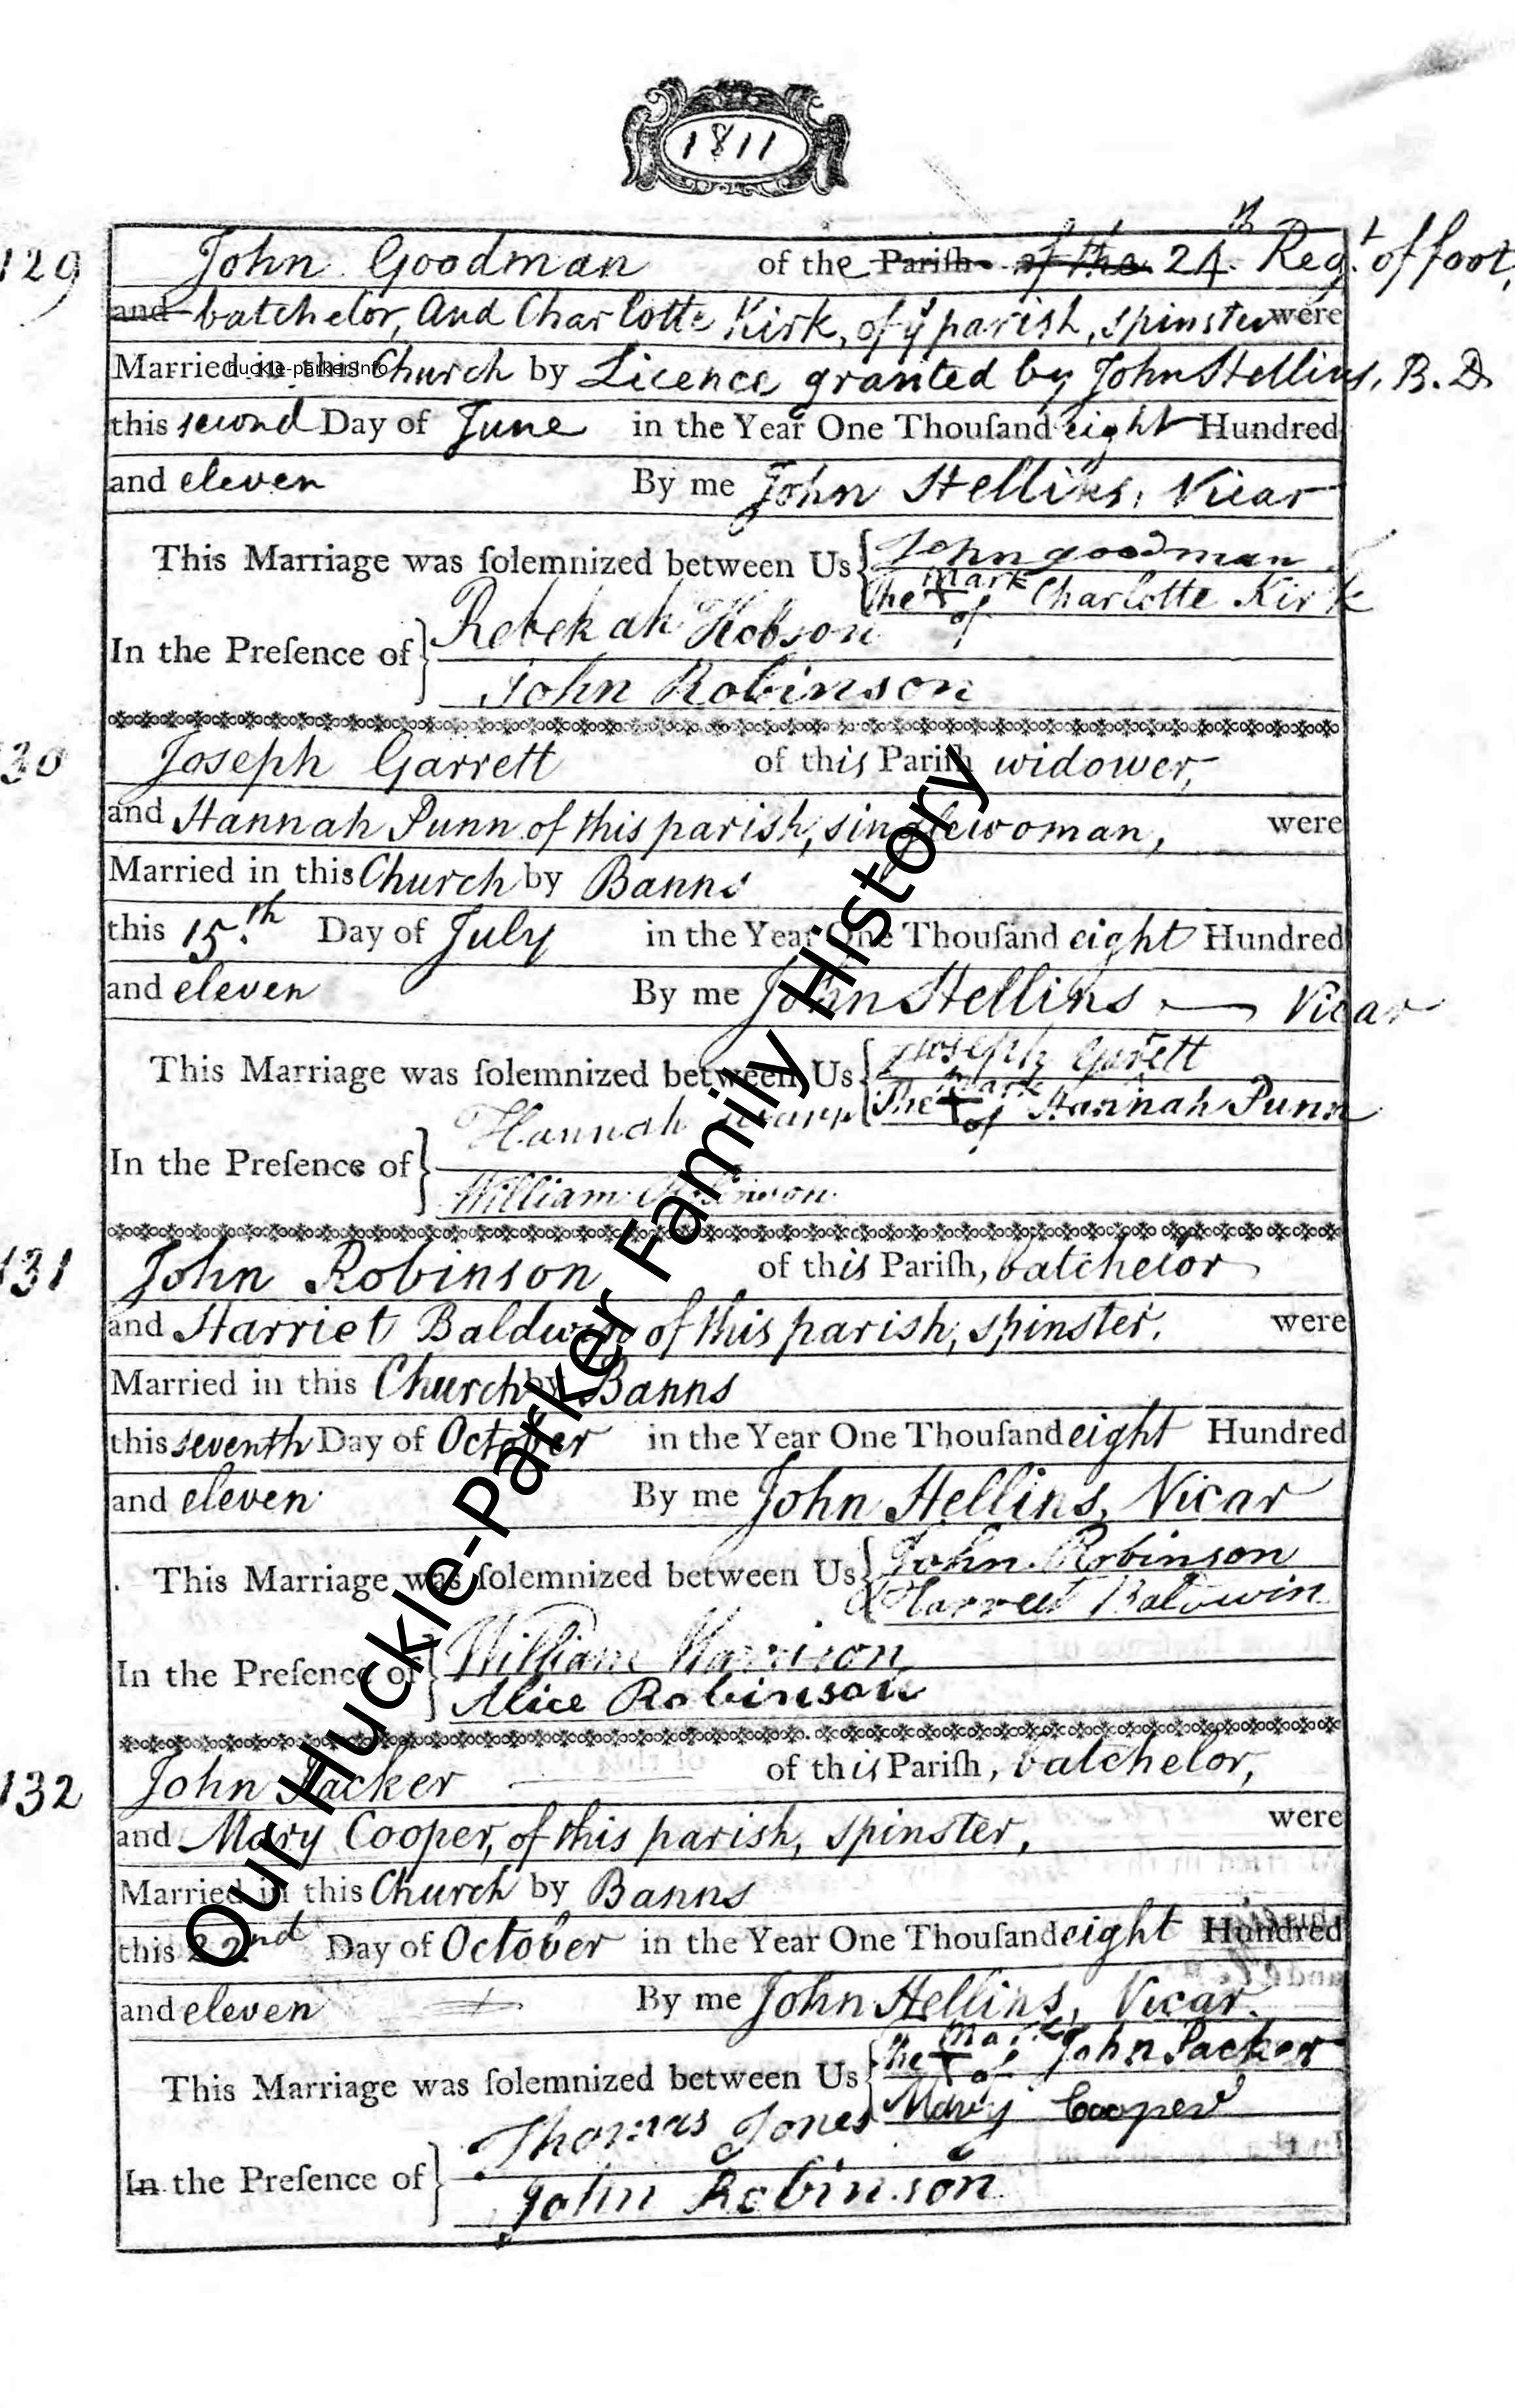 1811
129 John Goodman of the Pariſh of the 24th Regt of foot,
and batchelor, And Charlotte Kirk, of ye parish, spinster were
Married in this Church by Licence granted by John Hellins, B.D.
huckle-parker.info
this second Day of June in the Year One Thouſand eight Hundred
and eleven By me John Hellins, Vicar
This Marriage was ſolemnized between Us { John goodman
The + mark of Charlotte Kirk
In the Preſence of } Rebekah Hobson
John Robinson
30 Joseph Garrett of this Pariſh widower,
and Hannah Punn of this parish, singlewoman, were
Married in this Church by Banns
this 15.th Day of July in the Year One Thouſand eight Hundred
and eleven By me John Hellins Vicar
This Marriage was ſolemnized between Us { Joseph Garrett
The + mark of Hannah Punn
In the Preſence of } Hannah
William
131 John Robinson of this Pariſh, batchelor
and Harriet Baldwin of this parish, spinster, were
Married in this Church by Banns
this seventh Day of October in the Year One Thouſand eight Hundred
and eleven By me John Hellins, Vicar
This Marriage was ſolemnized between Us { John Robinson
Harreet Baldwin
In the Preſence of } William Harrison
Alice Robinson
132 John Packer of this Pariſh, batchelor,
and Mary Cooper, of this parish, spinster, were
Married in this Church by Banns
this 22nd Day of October in the Year One Thouſand eight Hundred
and eleven By me John Hellins, Vicar.
This Marriage was ſolemnized between Us { The + mark of John Packer
Mary Cooper
In the Preſence of } Thomas Jones
John Robinson
Our Huckle-Parker Family History